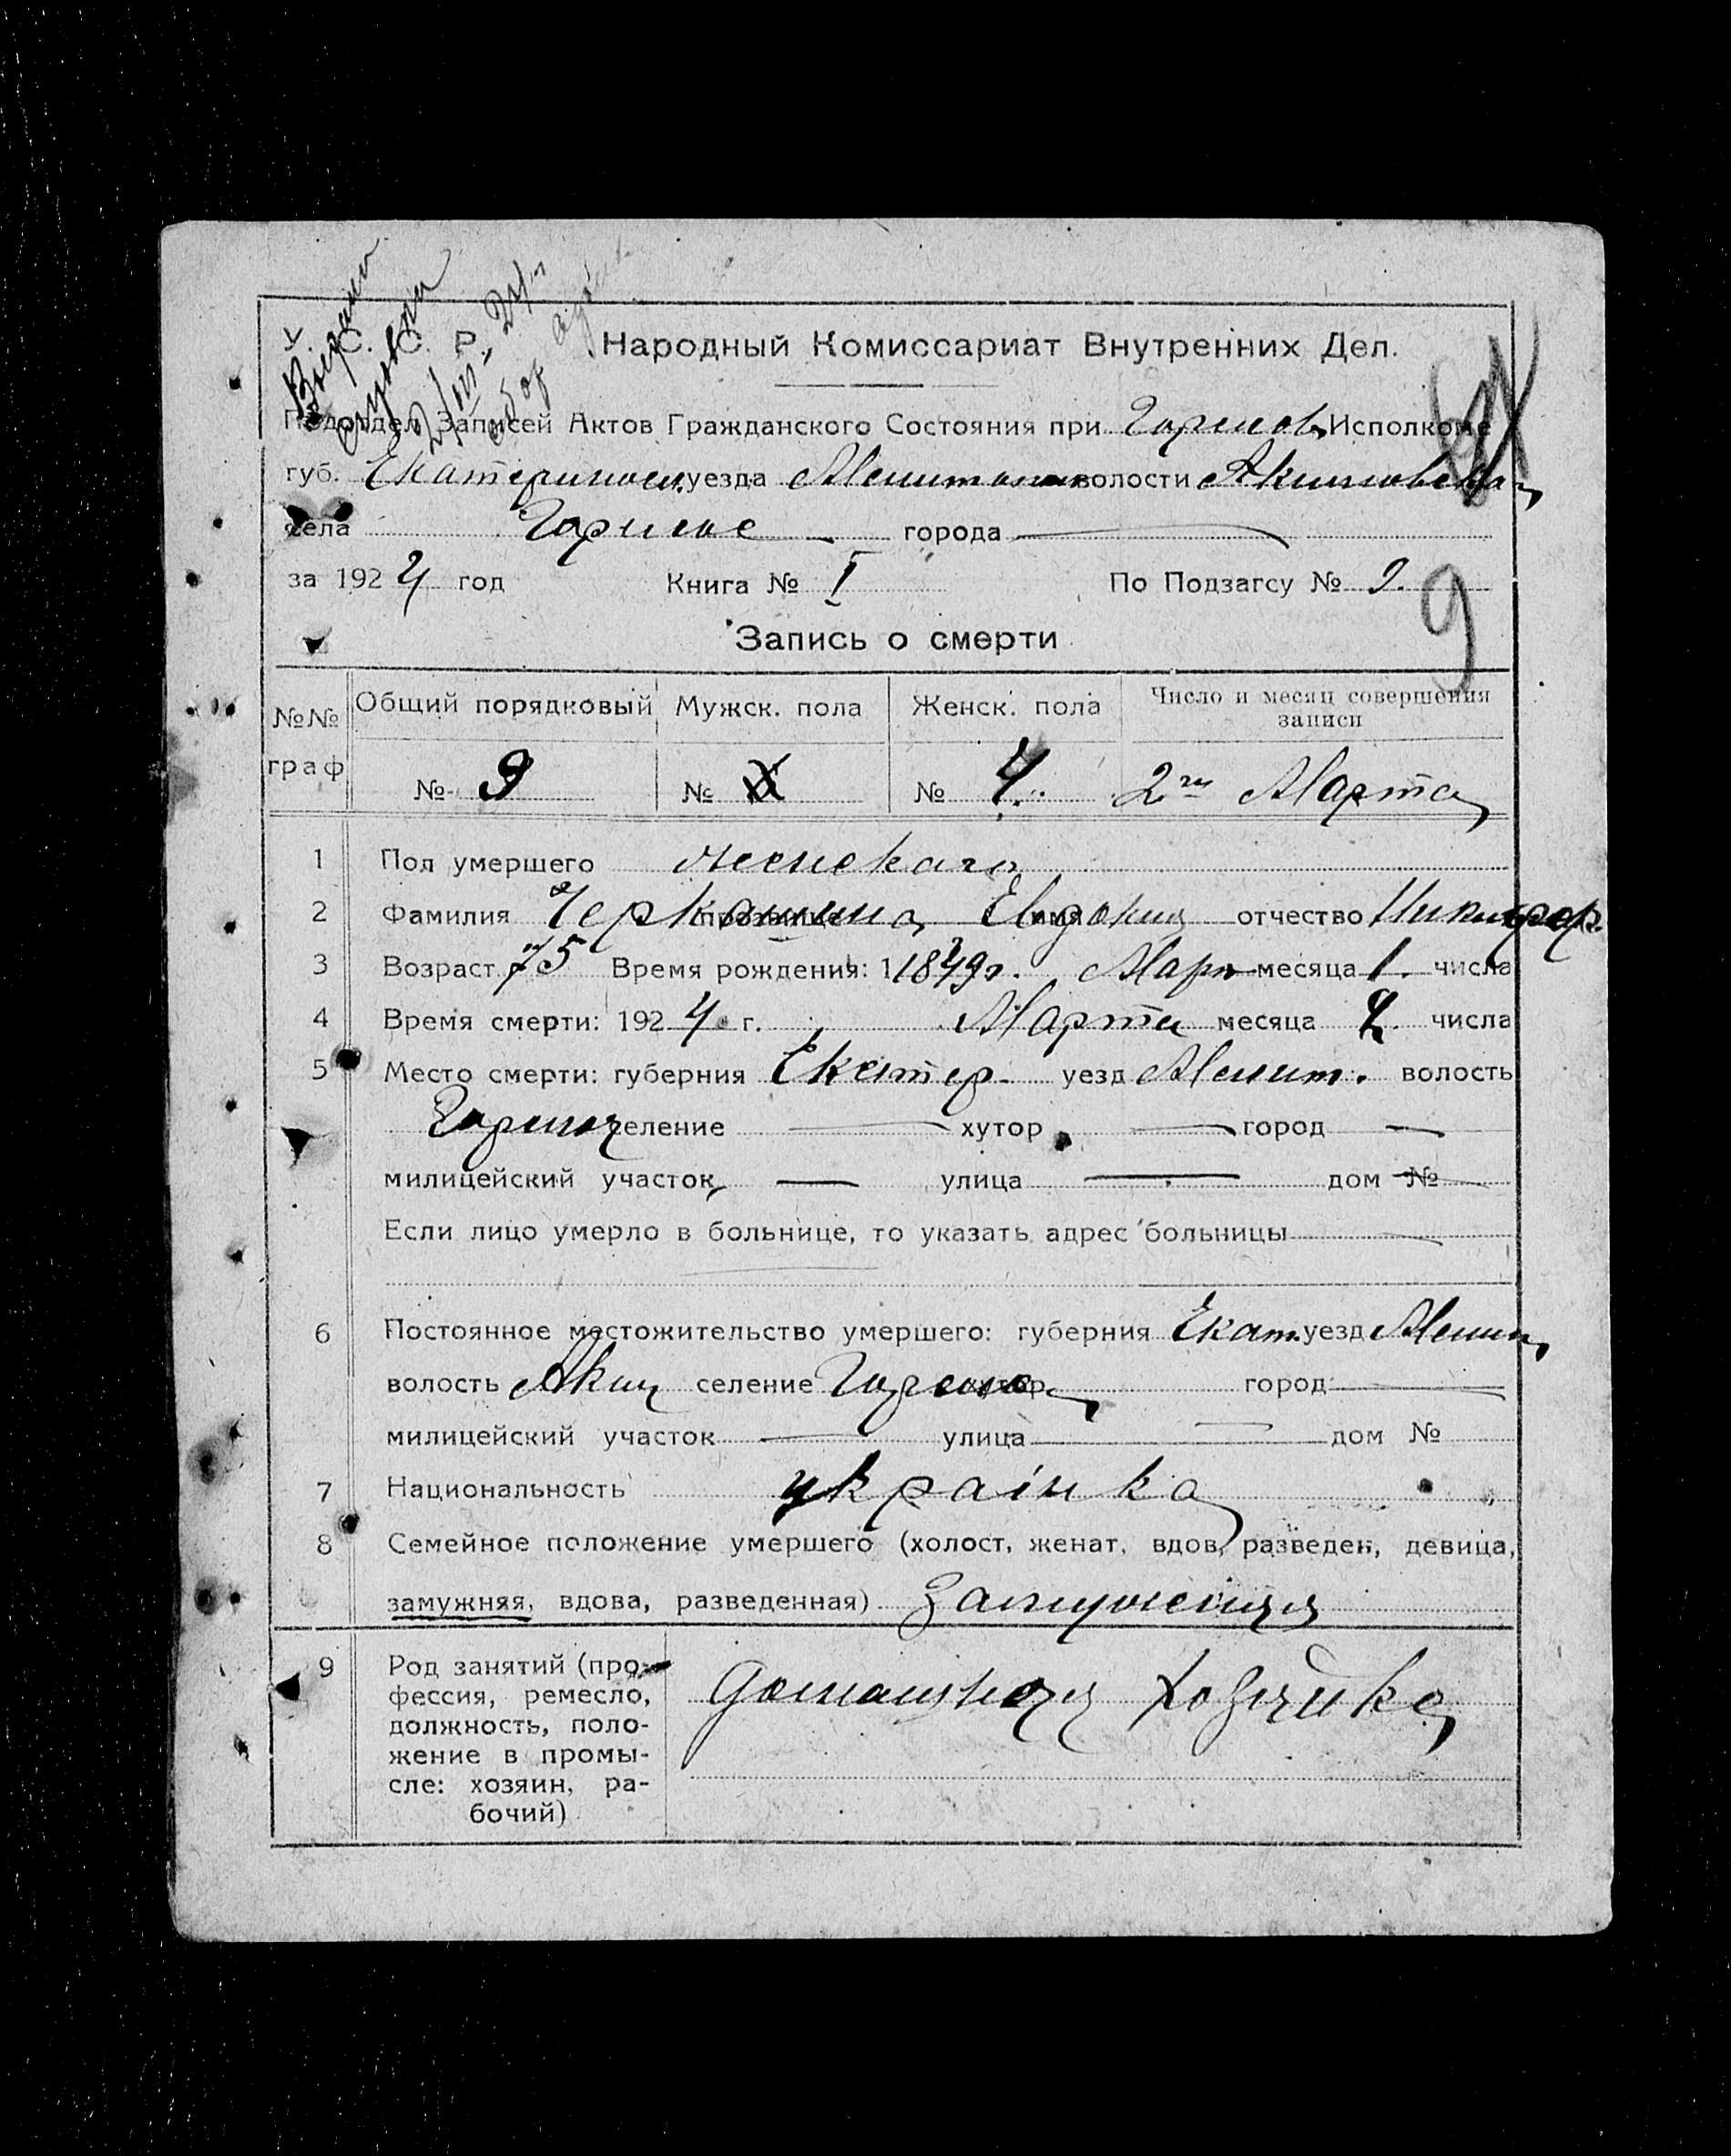 У. С. С. Р. Народный Комиссариат Внутренних Дел.
Подотдел Записей Актов Гражданского Состояния при Горпсов Исполкоме
губ. Екатеринос. уезда Мелитопол волости Акимовска
села города
за 1924 год Книга № I По Подзагсу № 9.
9
Запись о смерти
№№ граф Общий порядковый Мужск. пола Женск. пола Число и месяц совершения записи
№ 9 № № 4. 2го Марта
1 Пол умершего женскаго
2 Фамилия Черкашина прозвище имя Евдокия отчество Никифор.
3 Возраст 75 Время рождения: 1 1849г. Март месяца 1. числа
4 Время смерти: 1924 г. Марта месяца 2. числа
5 Место смерти: губерния Екатер. уезд Мелит. волость
селение — хутор — город —
милицейский участок — улица — дом № —
Если лицо умерло в больнице, то указать адрес больницы —
6 Постоянное местожительство умершего: губерния Екат. уезд Мелит
волость Аким селение хутор город —
милицейский участок — улица — дом №
7 Национальность украінка
8 Семейное положение умершего (холост, женат, вдов, разведен, девица,
замужняя, вдова, разведенная) Замужняя
9 Род занятий (про-
фессия, ремесло,
должность, поло-
жение в промы-
сле: хозяин, ра-
бочий)
домашняя хозяйка